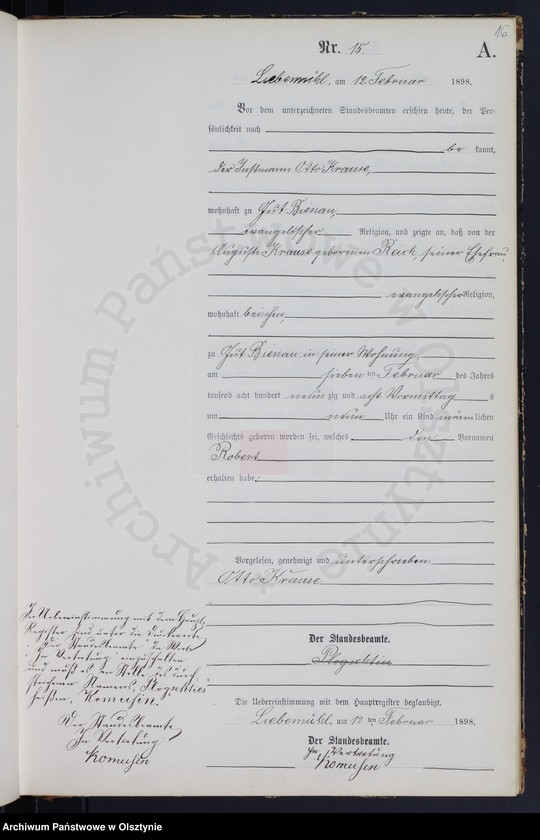 16
Nr. 15.
A.
Liebemühl, am 12 Februar 1898.
Vor dem unterzeichneten Standesbeamten erschien heute, der Per-
sönlichkeit nach
be kannt,
der Instmann Otto Krause,
wohnhaft zu Gut Bienau,
evangelischer Religion, und zeigte an, daß von der
Auguste Krause geborenen Reich, seiner Ehefrau,
evangelischer Religion,
wohnhaft bei ihm,
zu Gut Bienau in seiner Wohnung,
am sieben ten Februar des Jahres
tausend acht hundert neun zig und acht Vormittag s
um neun Uhr ein Kind männlichen
Geschlechts geboren worden sei, welches den Vornamen
Robert
erhalten habe.
Vorgelesen, genehmigt und unterschrieben
Otto Krause
Der Standesbeamte.
Die Uebereinstimmung mit dem Hauptregister beglaubigt.
Liebemühl, am 12 ten Februar 1898.
Der Standesbeamte.
In Vertretung
Komusin
In Uebereinstimmung mit dem Haupt-
Register sind unter die Druckworte
"Der Standesbeamte" die Worte
"In Vertretung" einzuschalten
und muß es an Stelle des durch-
strichenen Namens
heißen, "Komusin".
Der Standesbeamte
In Vertretung
Komusin
Archiwum Państwowe w Olsztynie *
Archiwum Państwowe w Olsztynie